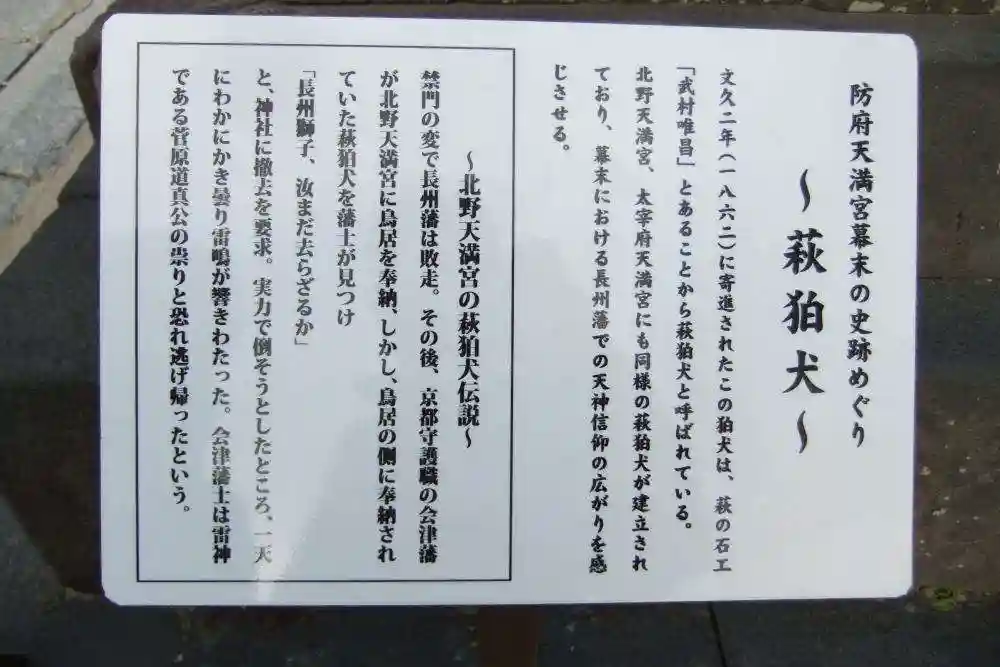 防府天満宮幕末の史跡めぐり
～萩狛犬～
文久二年(一八六二)に寄進されたこの狛犬は、萩の石工
「武村唯昌」とあることから萩狛犬と呼ばれている。
北野天満宮、太宰府天満宮にも同様の萩狛犬が建立され
ており、幕末における長州藩での天神信仰の広がりを感
じさせる。
～北野天満宮の萩狛犬伝説～
禁門の変で長州藩は敗走。その後、京都守護職の会津藩
が北野天満宮に鳥居を奉納、しかし、鳥居の側に奉納され
ていた萩狛犬を藩士が見つけ
「長州獅子、汝まだ去らざるか」
と、神社に撤去を要求。実力で倒そうとしたところ、一天
にわかにかき曇り雷鳴が響きわたった。会津藩士は雷神
である菅原道真公の祟りと恐れ逃げ帰ったという。